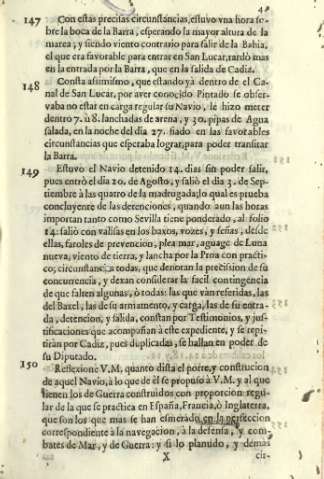 41
147 Con estas precisas circunstancias, estuvo vna hora so-
bre la boca de la Barra, esperando la mayor altura de la
marea; y siendo viento contrario para salir de la Bahia,
el que era favorable para entrar en San Lucar, tardò mas
en la entrada por la Barra, que en la salida de Cadiz.
148 Consta assimismo, que estando yà dentro de el Ca-
nal de San Lucar, por aver conocido Pintado se obser-
vaba no estar en carga regular su Navio, le hizo meter
dentro 7. ù 8. lanchadas de arena, y 30. pipas de Agua
salada, en la noche del dia 27. fiado en las favorables
circunstancias que esperaba lograr, para poder transitar
la Barra.
149 Estuvo el Navio detenido 14. dias sin poder salir,
pues entrò el dia 20. de Agosto, y saliò el dia 3. de Sep-
tiembre à las quatro de la madrugada, lo qual es prueba
concluyente de las detenciones, quando aun las horas
importan tanto como Sevilla tiene ponderado, al folio
14: saliò con valisas en los baxos, vozes, y señas, desde
ellas, faroles de prevencion, plea mar, aguage de Luna
nueva, viento de tierra, y lancha por la Proa con practi-
co; circunstancias todas, que denotan la precission de su
concurrencia, y dexan considerar la facil contingencia
de que falten algunas, ò todas: las que vàn referidas, las
del Baxel, las de su armamento, y carga, las de su entra-
da, detencion, y salida, constan por Testimonios, y jus-
tificaciones que acompañan à este expediente, y se repi-
tiràn por Cadiz, pues duplicadas, se hallan en poder de
su Diputado.
150 Reflexione V.M. quanto dista el porte, y construcion
de aquel Navio, à lo que de èl se propuso à V.M. y al que
tienen los de Guerra construidos con proporcion regu-
lar de la que se practica en España, Francia, ò Inglaterra,
que son los que mas se han esmerado en la perfeccion
correspondiente à la navegacion, à la defensa, y com-
bates de Mar, y de Guerra: y si lo planudo, y demàs
X cir-